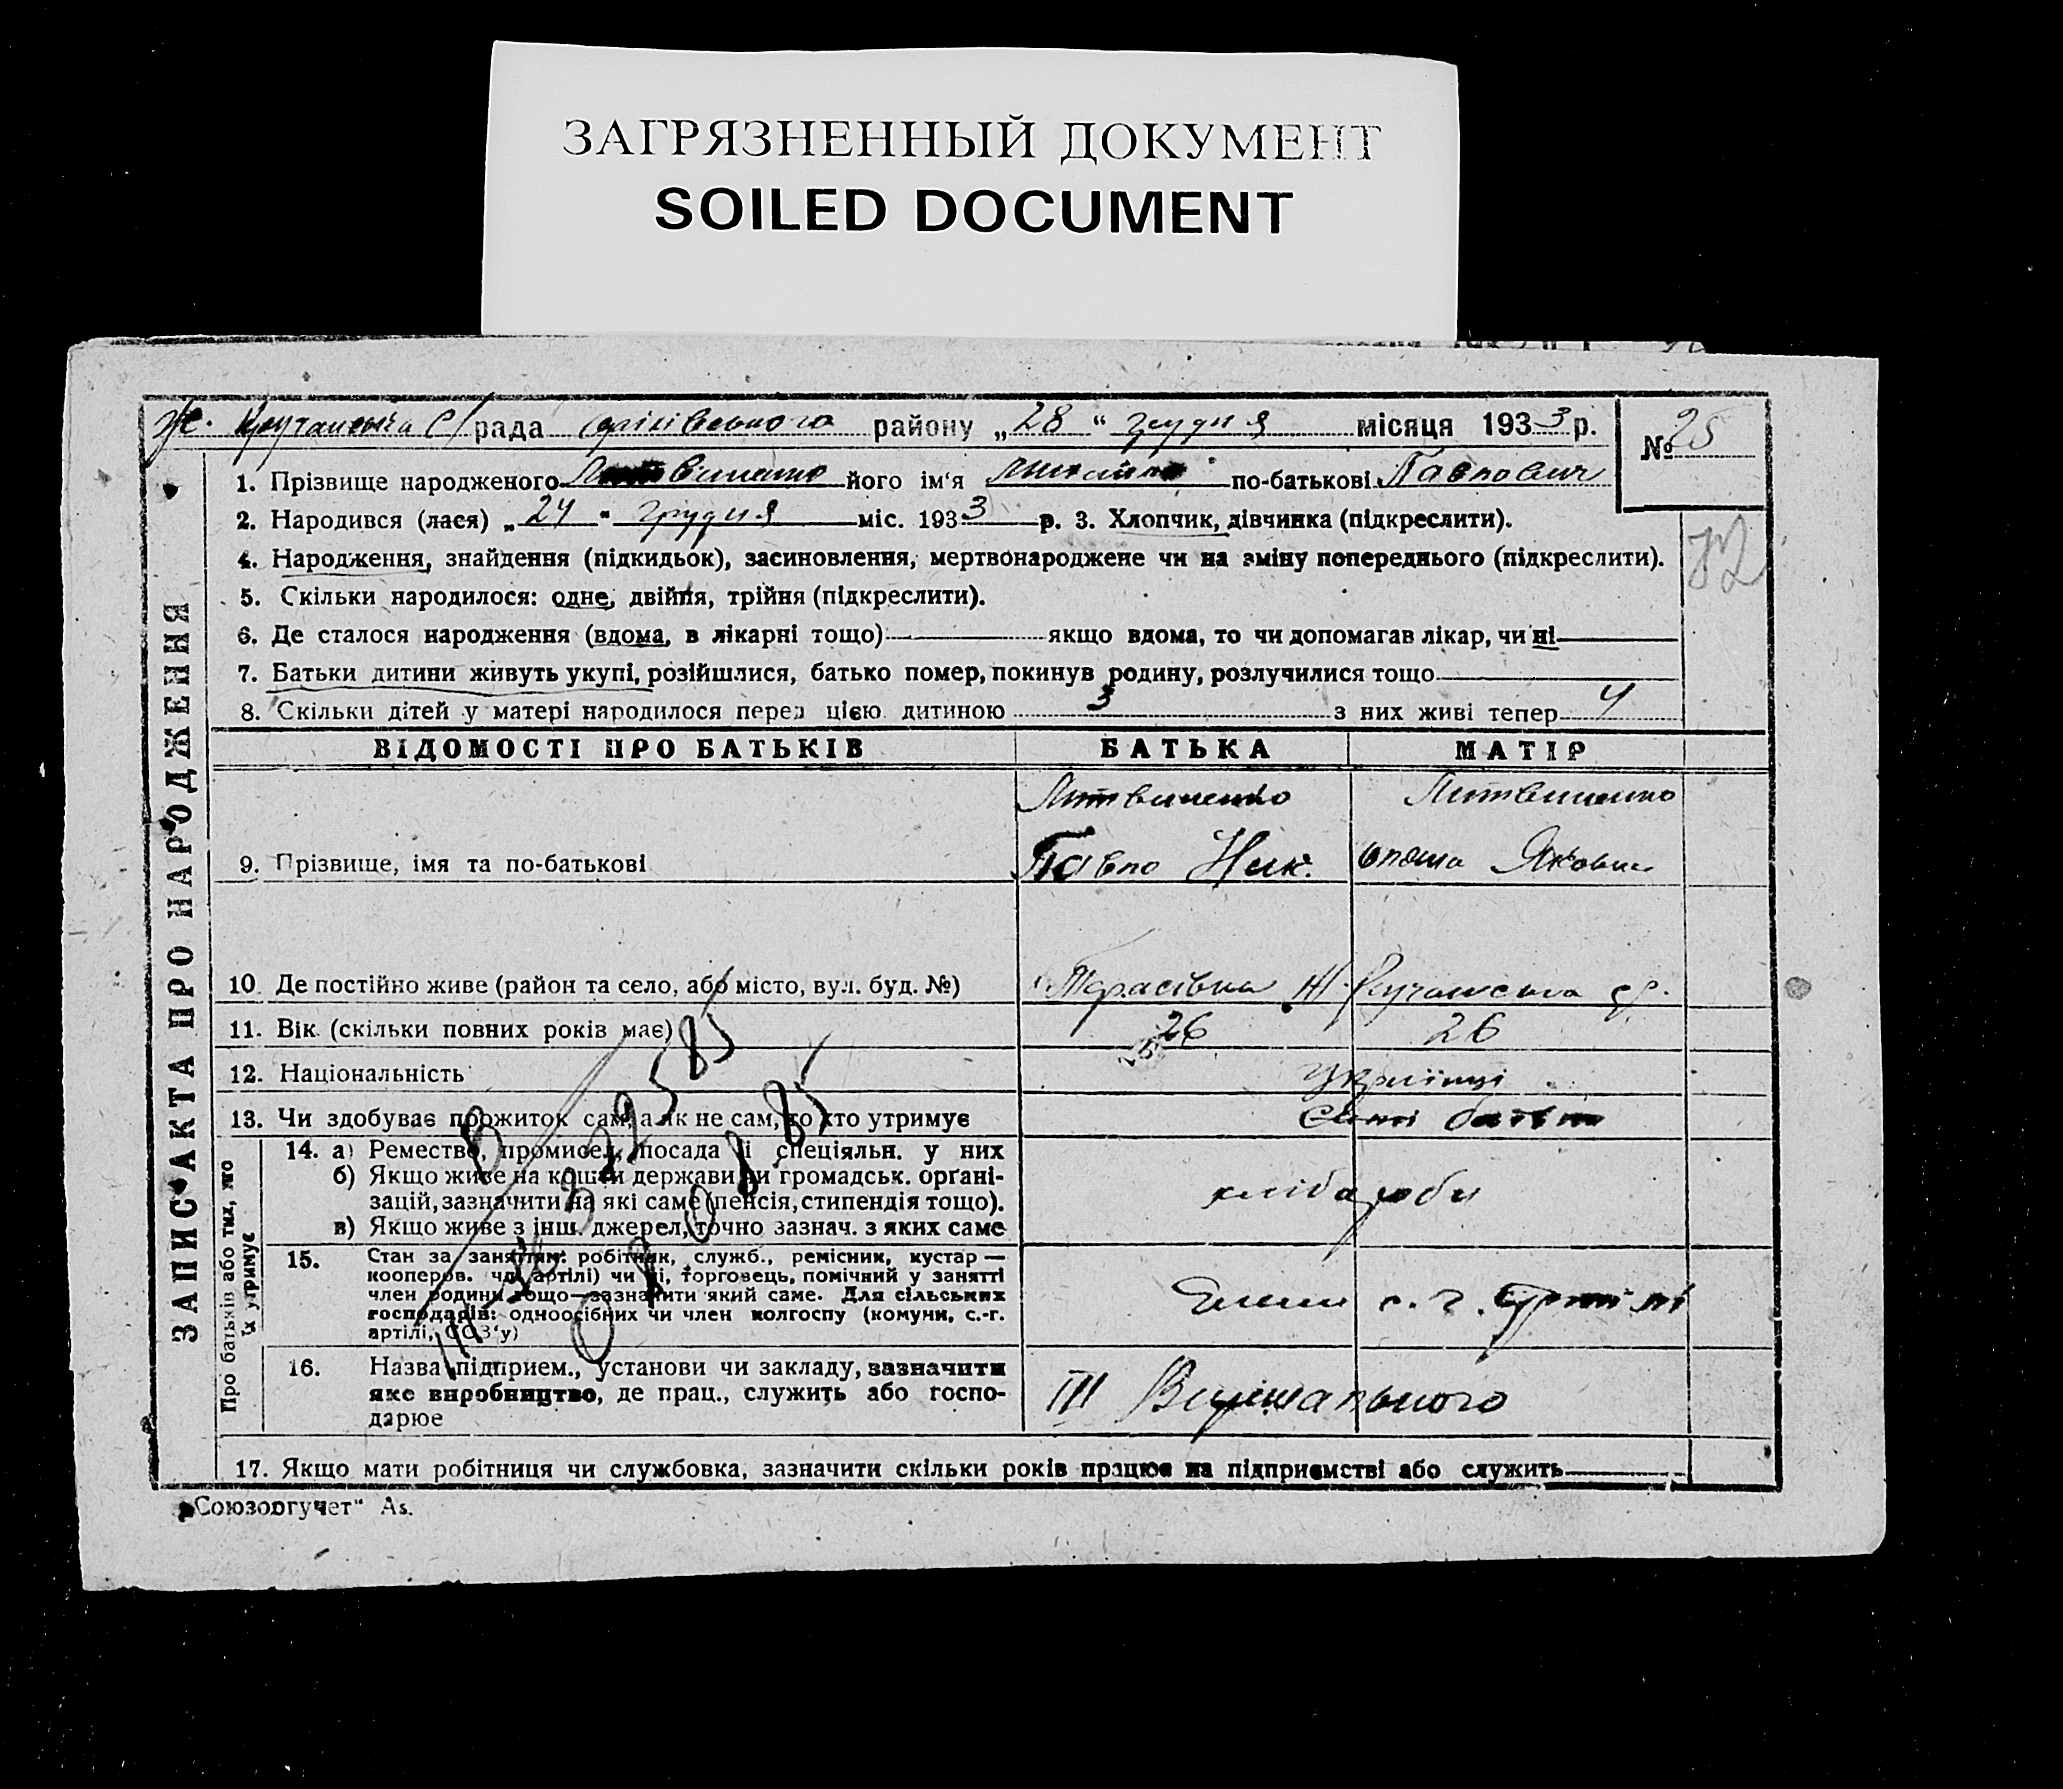 ЗАГРЯЗНЕННЫЙ ДОКУМЕНТ
SOILED DOCUMENT
рада району „28“ грудня місяця 1933 р.
№ 25
1. Прізвище народженого Литвиненко його ім‘я по-батькові Павлович
2. Народився (лася) „24“ грудня міс. 1933 р. 3. Хлопчик, дівчинка (підкреслити).
4. Народження, знайдення (підкидьок), засиновлення, мертвонароджене чи на зміну попереднього (підкреслити).
5. Скільки народилося: одне, двійня, трійня (підкреслити).
6. Де сталося народження (вдома, в лікарні тощо) якщо вдома, то чи допомагав лікар, чи ні
7. Батьки дитини живуть укупі, розійшлися, батько помер, покинув родину, розлучилися тощо
8. Скільки дітей у матері народилося перед цією дитиною 3 з них живі тепер 4
ЗАПИС АКТА ПРО НАРОДЖЕННЯ
ВІДОМОСТІ ПРО БАТЬКІВ БАТЬКА МАТІР
Литвиненко Литвиненко
9. Прізвище, імя та по-батькові Павло Ник.
10. Де постійно живе (район та село, або місто, вул. буд. №) Тарасівка
11. Вік (скільки повних років має) 26 26
12. Національність українці
13. Чи здобуває прожиток сам, а як не сам, то хто утримує
Про батьків або тих, хто їх утримує
14. а) Ремество, промисел, посада і спеціяльн. у них
б) Якщо живе на кошти держави чи громадськ. орґані-
зацій, зазначити на які саме (пенсія, стипендія тощо).
в) Якщо живе з інш. джерел, точно зазнач. з яких саме
хлібороби
15. Стан за заняттям: робітник, служб., ремісник, кустар —
кооперов. чл. артілі) чи ні, торговець, помічний у занятті
член родини тощо—зазначити який саме. Для сільських
господарів: одноосібних чи член колгоспу (комуни, с.-г.
артілі, СОЗ‘у)
Члени с. г. артілі
16. Назва підприєм., установи чи закладу, зазначити
яке виробництво, де прац., служить або госпо-
дарює
III Вирішального
17. Якщо мати робітниця чи службовка, зазначити скільки років працює на підприємстві або служить
„Союзоргучет“ As.